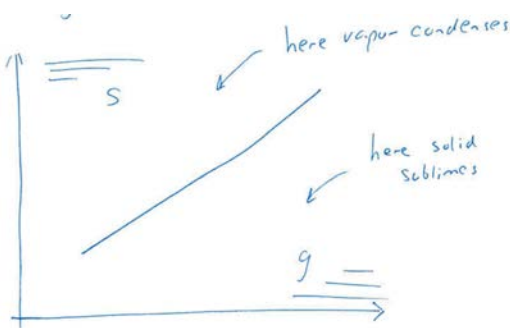 here vapur condenses
S
here solid
sublimes
g